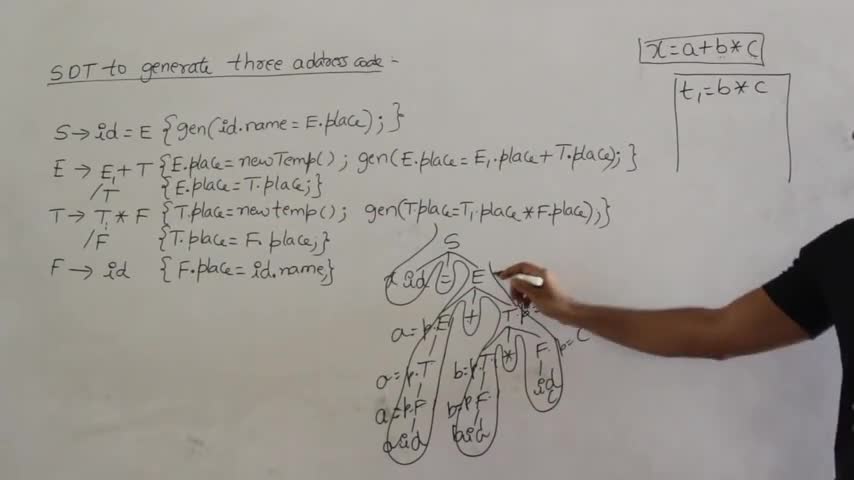 SDT to generate three address code :-
x = a + b * c
t₁ = b * c
S → id = E {gen(id.name = E.place); }
E → E₁ + T {E.place = newTemp(); gen(E.place = E₁.place + T.place); }
/T {E.place = T.place;}
T → T₁ * F {T.place = newtemp(); gen(T.place = T₁.place * F.place);}
/F {T.place = F.place;}
F → id {F.place = id.name;}
S
x id = E
a = p. E + T. p =
a = p. T b = p. T * F. p = c
a = p. F b = p. F id c
a id b id